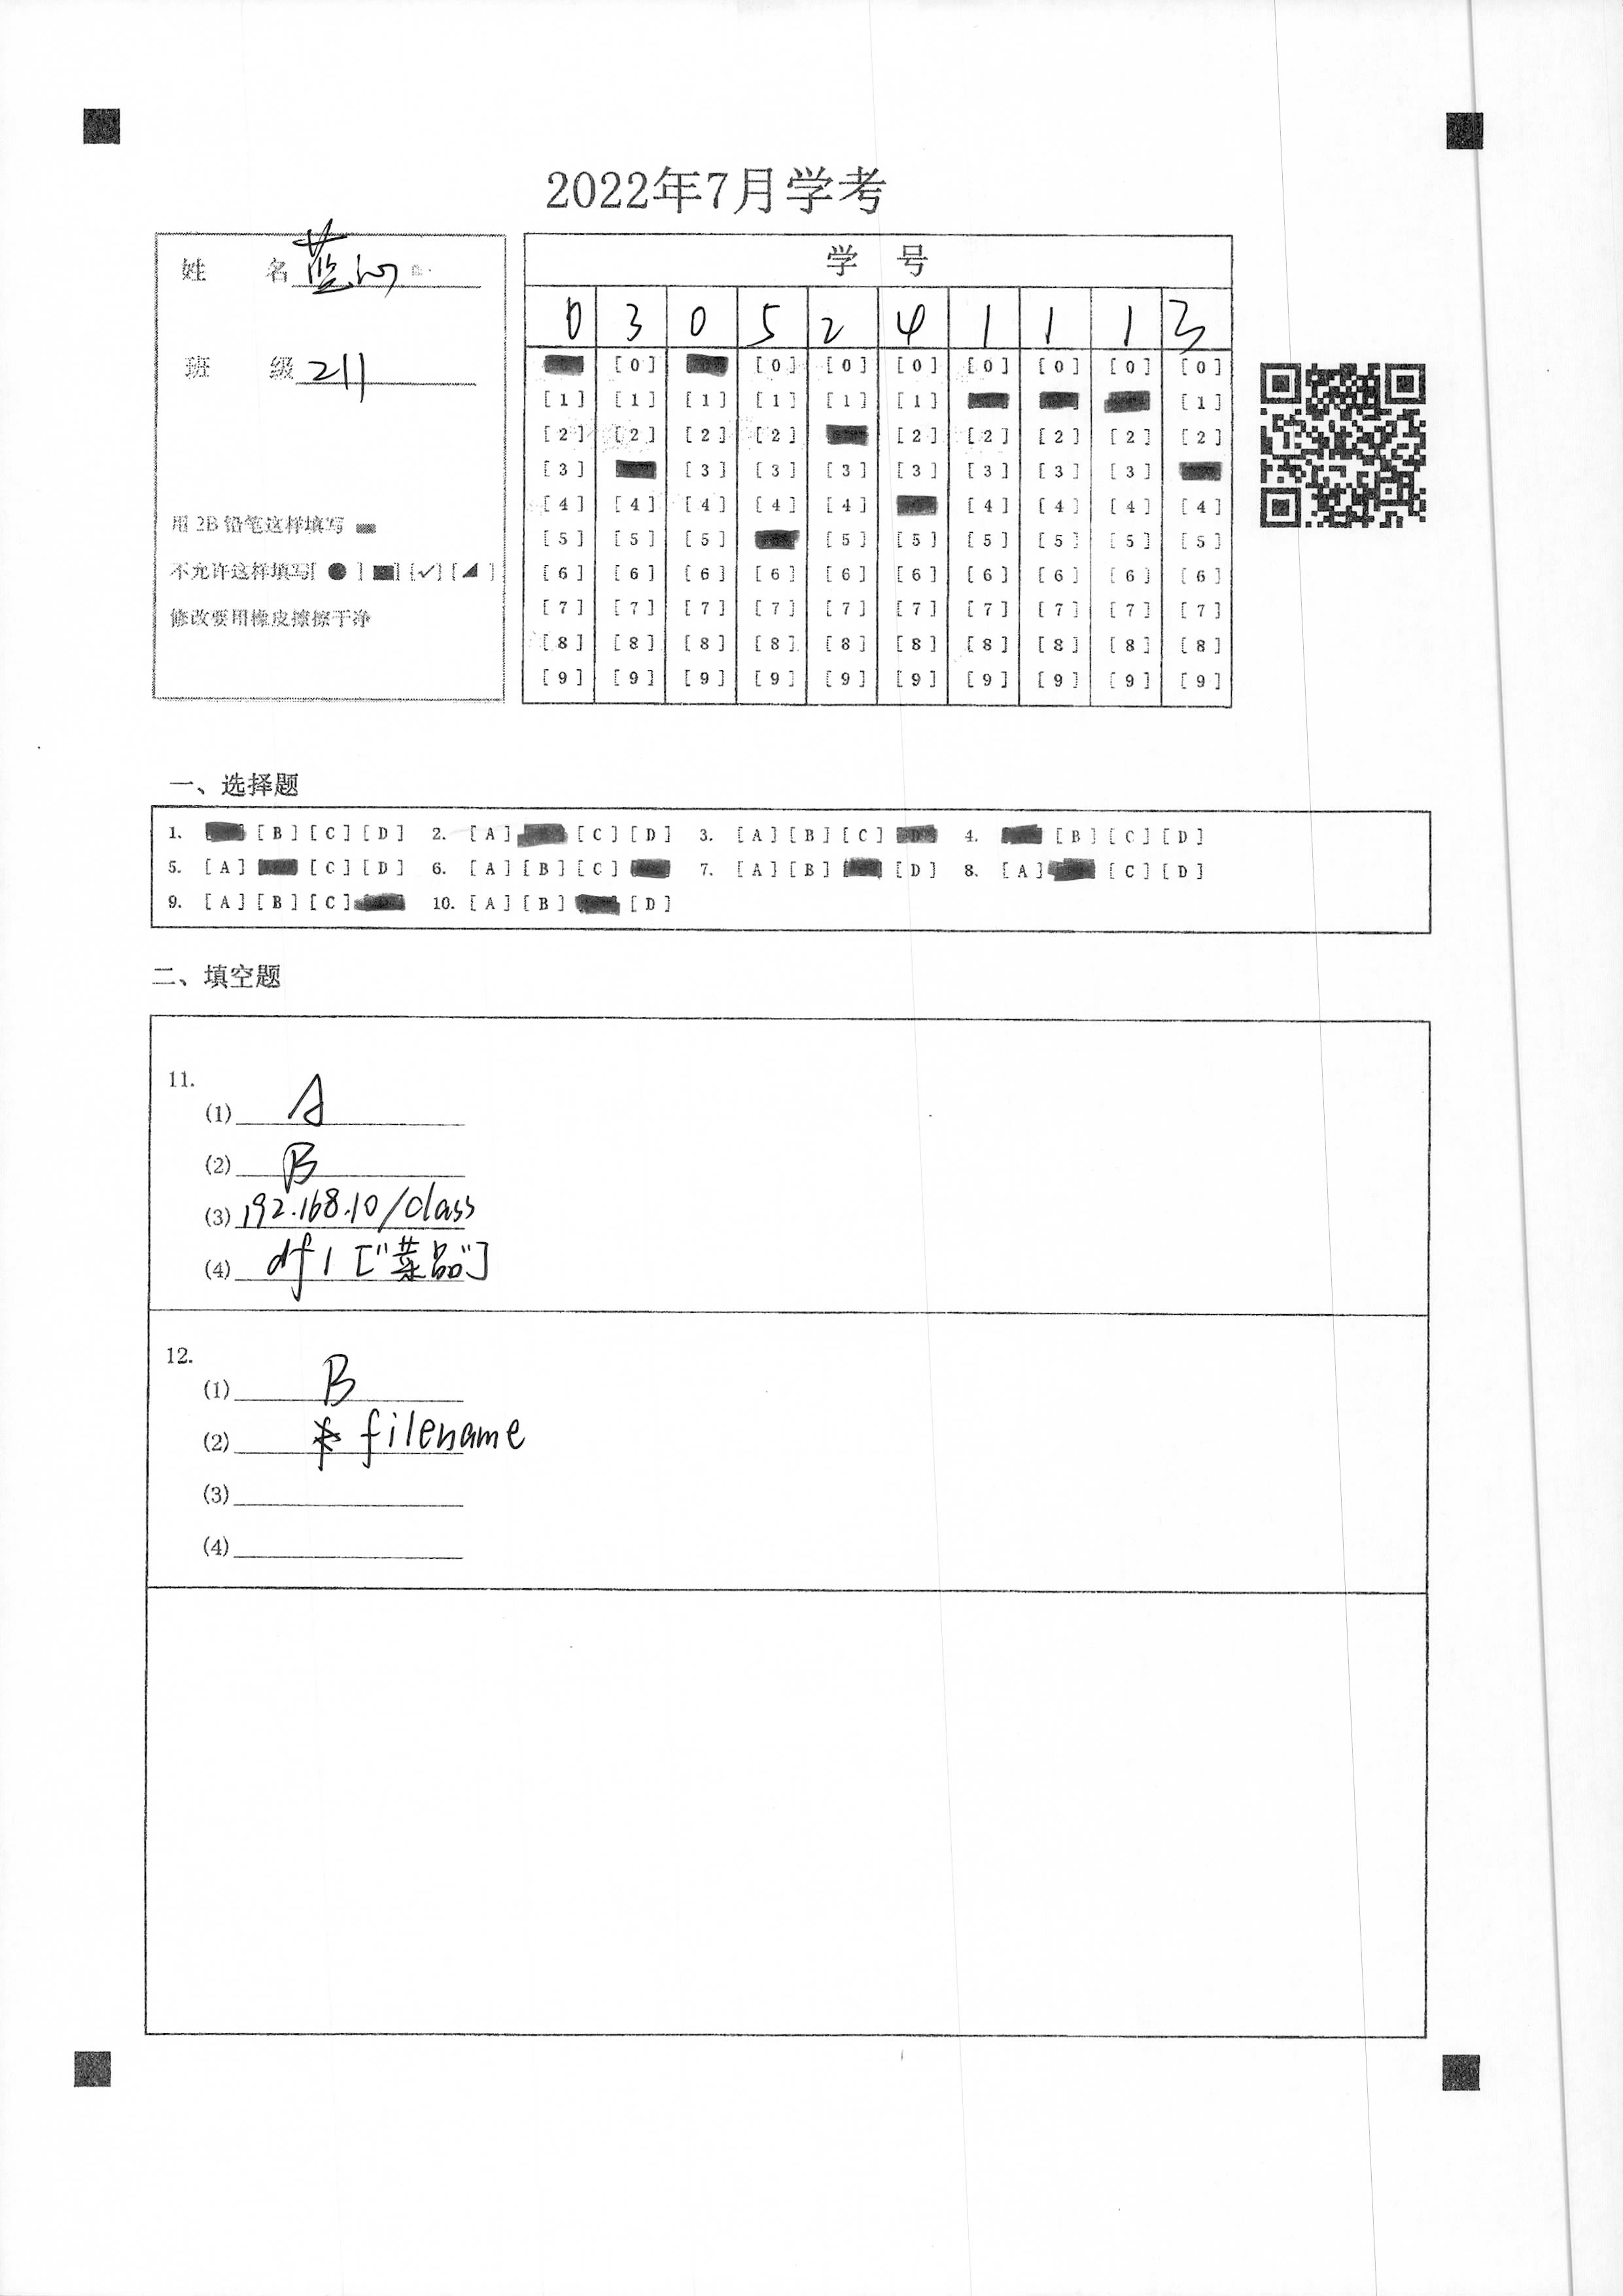 2022年7月学考
姓 名 蓝
班 级 211
用 2B 铅笔这样填写
不允许这样填写[ ● ] [■] [✓] [◢ ]
修改要用橡皮擦擦干净
学 号
0 3 0 5 2 4 1 1 1 3
[0] [0] [0] [0] [0] [0] [0] [0]
[1] [1] [1] [1] [1] [1] [1]
[2] [2] [2] [2] [2] [2] [2] [2] [2]
[3] [3] [3] [3] [3] [3] [3] [3]
[4] [4] [4] [4] [4] [4] [4] [4] [4]
[5] [5] [5] [5] [5] [5] [5] [5] [5]
[6] [6] [6] [6] [6] [6] [6] [6] [6] [6]
[7] [7] [7] [7] [7] [7] [7] [7] [7] [7]
[8] [8] [8] [8] [8] [8] [8] [8] [8] [8]
[9] [9] [9] [9] [9] [9] [9] [9] [9] [9]
一、选择题
1. [B] [C] [D] 2. [A] [C] [D] 3. [A] [B] [C] 4. [B] [C] [D]
5. [A] [C] [D] 6. [A] [B] [C] 7. [A] [B] [D] 8. [A] [C] [D]
9. [A] [B] [C] 10. [A] [B] [D]
二、填空题
11.
(1) A
(2) B
(3) 192.168.10/class
(4) df1["菜品"]
12.
(1) B
(2) filename
(3)
(4)